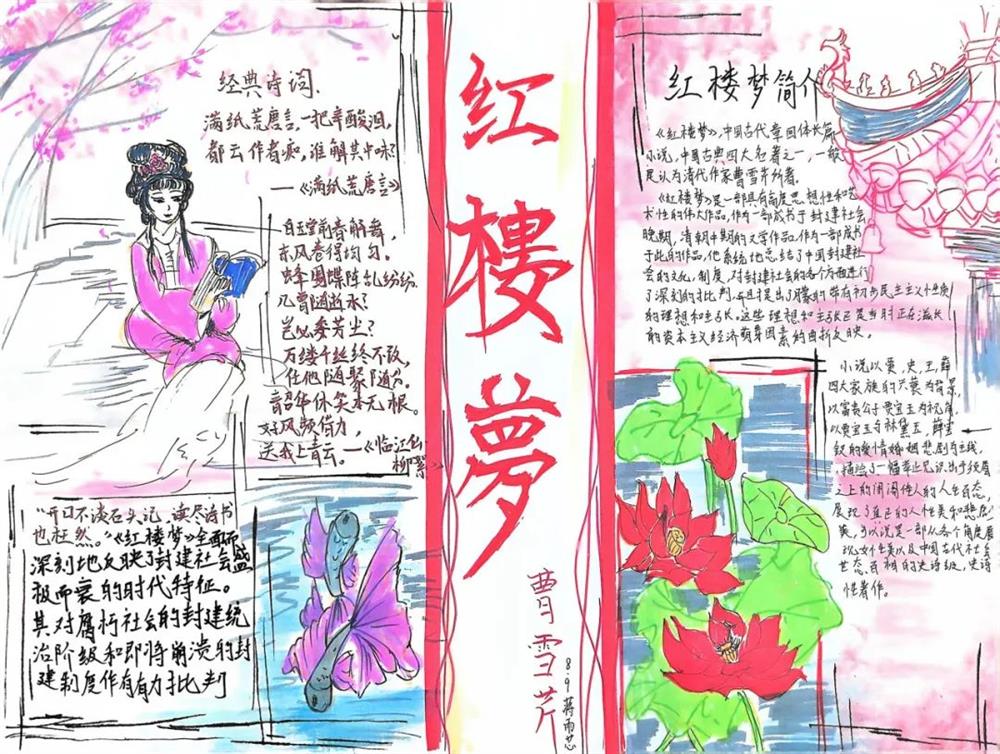 经典诗词.
满纸荒唐言,一把辛酸泪,
都云作者痴,谁解其中味?
—《满纸荒唐言》
白玉堂前春解舞,
东风卷得均匀。
蜂围蝶阵乱纷纷.
几曾随逝水?
岂必委芳尘?
万缕千丝终不改,
任他随聚随分。
韶华休笑本无根。
好风频借力,
送我上青云。—《临江仙
柳絮》
"开口不谈石头记,读尽诗书
也枉然。"《红楼梦》全面而
深刻地反映了封建社会盛
极而衰的时代特征。
其对腐朽社会的封建统
治阶级和即将崩溃的封
建制度作有有力批判
红楼梦
曹雪芹
8.9 蒋雨芯
红楼梦简介
《红楼梦》,中国古代章回体长篇
小说,中国古典四大名著之一,一般
是认为清代作家曹雪芹所著。
《红楼梦》是一部具有高度思想性和艺
术性的伟大作品,作为一部成书于封建社会
晚期,清朝中期的文学作品,作为一部成书
于此的作品,他系统地总结了中国封建社
会的文化,制度,对封建社会的各个方面进行
了深刻的批判,并且提出了朦胧的带有初步民主主义性质
的理想和主张。这些理想和主张正是当时正在滋长
的资本主义经济萌芽因素的曲折反映。
小说以贾,史,王,薛
四大家族的兴衰为背景,
以富贵公子贾宝玉为视角,
以贾宝玉与林黛玉,薛宝
钗的爱情婚姻悲剧为主线,
描绘了一幅举止见识出于须眉
之上的闺阁佳人的人生百态,
展现了真正的人性美和悲剧
美,可以说是一部从各个角度展
现女性美以及中国古代社会
世态百相的史诗级,史诗
性著作。